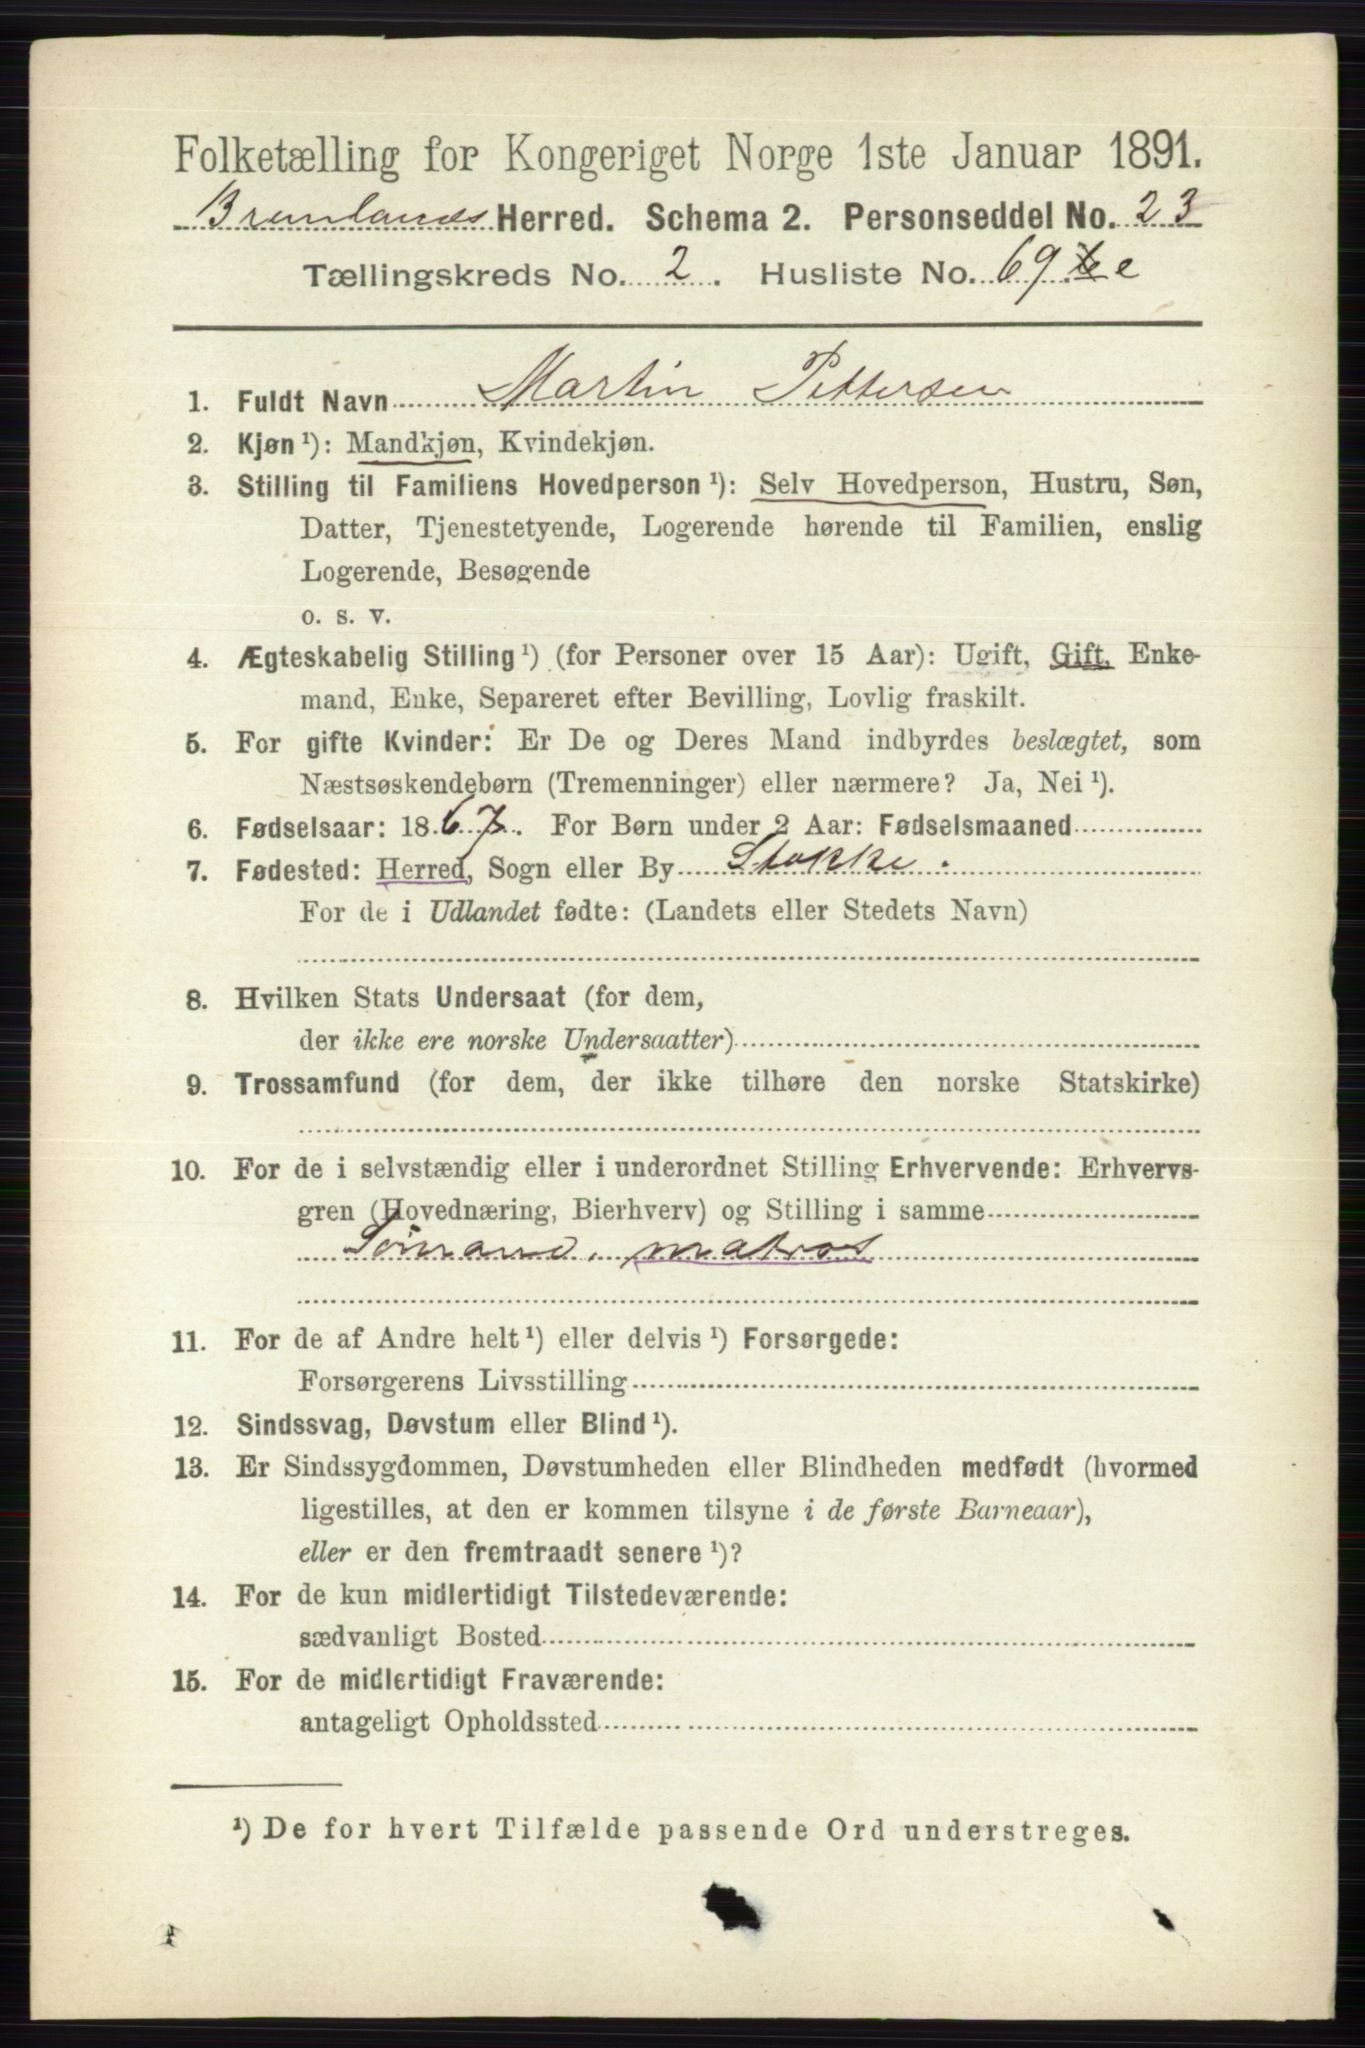 Folketælling for Kongeriget Norge 1ste Januar 1891.
Brunlands Herred. Schema 2. Personseddel No. 23
Tællingskreds No. 2. Husliste No. 69 e
1. Fuldt Navn Martin Pettersen
2. Kjøn ¹): Mandkjøn, Kvindekjøn.
3. Stilling til Familiens Hovedperson ¹): Selv Hovedperson, Hustru, Søn,
Datter, Tjenestetyende, Logerende hørende til Familien, enslig
Logerende, Besøgende
o. s. v.
4. Ægteskabelig Stilling ¹) (for Personer over 15 Aar): Ugift, Gift, Enke-
mand, Enke, Separeret efter Bevilling, Lovlig fraskilt.
5. For gifte Kvinder: Er De og Deres Mand indbyrdes beslægtet, som
Næstsøskendebørn (Tremenninger) eller nærmere? Ja, Nei ¹).
6. Fødselsaar: 1867. For Børn under 2 Aar: Fødselsmaaned
7. Fødested: Herred, Sogn eller By Stokke.
For de i Udlandet fødte: (Landets eller Stedets Navn)
8. Hvilken Stats Undersaat (for dem,
der ikke ere norske Undersaatter)
9. Trossamfund (for dem, der ikke tilhøre den norske Statskirke)
10. For de i selvstændig eller i underordnet Stilling Erhvervende: Erhvervs-
gren (Hovednæring, Bierhverv) og Stilling i samme
Sømand, matros
11. For de af Andre helt ¹) eller delvis ¹) Forsørgede:
Forsørgerens Livsstilling
12. Sindssvag, Døvstum eller Blind ¹).
13. Er Sindssygdommen, Døvstumheden eller Blindheden medfødt (hvormed
ligestilles, at den er kommen tilsyne i de første Barneaar),
eller er den fremtraadt senere ¹)?
14. For de kun midlertidigt Tilstedeværende:
sædvanligt Bosted
15. For de midlertidigt Fraværende:
antageligt Opholdssted
¹) De for hvert Tilfælde passende Ord understreges.